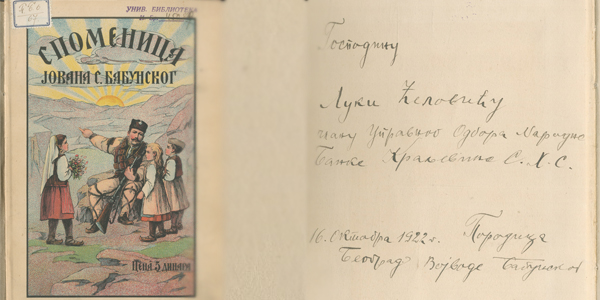 УНИВ. БИБЛИОТЕ
СПОМЕНИЦА
ЈОВАНА С. БАБУНСКОГ
ЦЕНА 5 ДИНАРА
Господину
Луки Ћеловићу
члану Управног Одбора Народне
Банке Краљевине С. Х. С.
16. Октобра 1922 г. Породица
Београд Војводе Бабунског